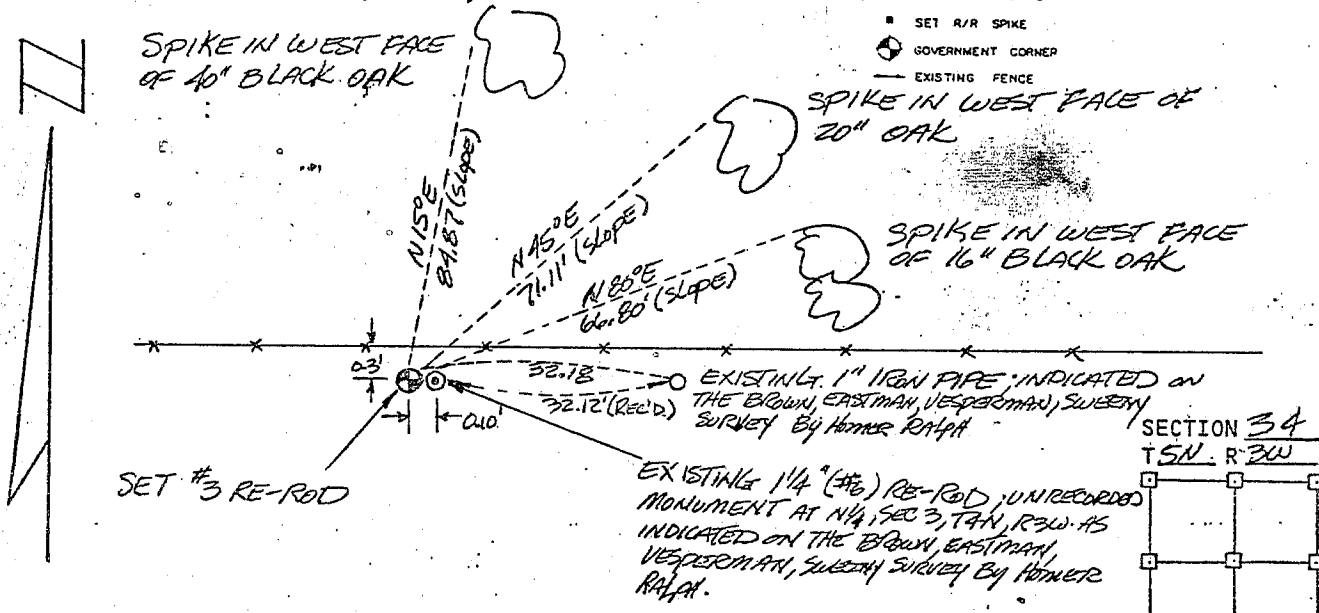 SPIKE IN WEST FACE
OF 40" BLACK OAK
SET R/R SPIKE
GOVERNMENT CORNER
EXISTING FENCE
SPIKE IN WEST FACE OF
20" OAK
SPIKE IN WEST FACE
OF 16" BLACK OAK
N15°E
84.87 (SLOPE)
N45°E
71.11' (SLOPE)
N80°E
66.80' (SLOPE)
0.3'
0.10'
32.18
32.12' (REC'D.)
EXISTING 1" IRON PIPE; INDICATED ON
THE BROWN, EASTMAN, VESPERMAN, SWEENY
SURVEY BY HOMER RALPH
SET #3 RE-ROD
EXISTING 1 1/4" (#6) RE-ROD; UNRECORDED
MONUMENT AT N1/4, SEC 3, T4N, R3W. AS
INDICATED ON THE BROWN, EASTMAN,
VESPERMAN, SWEENY SURVEY BY HOMER
RALPH.
SECTION 34
T 5N R 3W